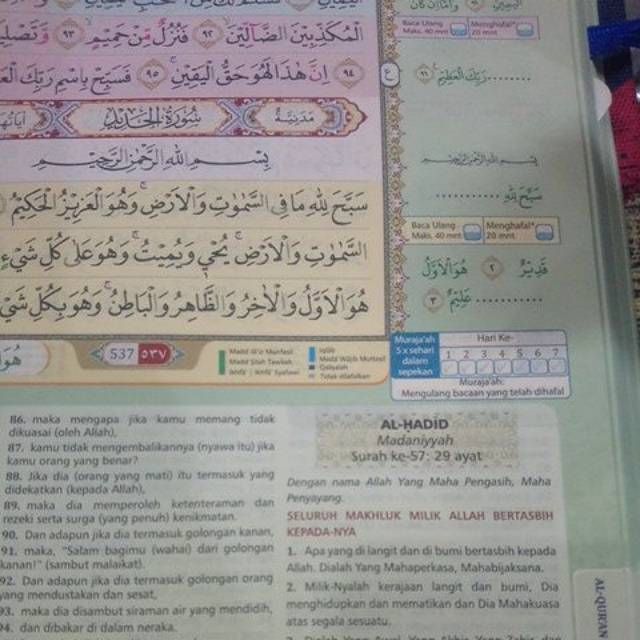 الْمُكَذِّبِيْنَ الضَّاۤلِّيْنَ ٩٢ فَنُزُلٌ مِّنْ حَمِيْمٍ ٩٣ وَّتَصْلِيَ
اِنَّ هٰذَا لَهُوَ حَقُّ الْيَقِيْنِ ٩٥ فَسَبِّحْ بِاسْمِ رَبِّكَ
مَدَنِيَّة سُوْرَةُ الْحَدِيْدِ
بِسْمِ اللّٰهِ الرَّحْمٰنِ الرَّحِيْمِ
سَبَّحَ لِلّٰهِ مَا فِى السَّمٰوٰتِ وَالْاَرْضِۚ وَهُوَ الْعَزِيْزُ الْحَكِيْمُ
السَّمٰوٰتِ وَالْاَرْضِۚ يُحْيٖ وَيُمِيْتُۚ وَهُوَ عَلٰى كُلِّ شَيْءٍ
هُوَ الْاَوَّلُ وَالْاٰخِرُ وَالظَّاهِرُ وَالْبَاطِنُۚ وَهُوَ بِكُلِّ شَيْ
537 ٥٣٧
Baca Ulang Maks. 40 mnt
Menghafal* 20 mnt
رَبِّكَ الْعَظِيْمِ ٩٦
بِسْمِ اللّٰهِ الرَّحْمٰنِ الرَّحِيْمِ
سَبَّحَ لِلّٰهِ
Baca Ulang Maks. 40 mnt
Menghafal* 20 mnt
قَدِيْرٌ ٢ هُوَ الْاَوَّلُ
عَلِيْمٌ ٣
Muraja'ah
5 x sehari
dalam
sepekan
Hari Ke-
1 2 3 4 5 6 7
Muraja'ah:
Mengulang bacaan yang telah dihafal
86. maka mengapa jika kamu memang tidak
dikuasai (oleh Allah),
87. kamu tidak mengembalikannya (nyawa itu) jika
kamu orang yang benar?
88. Jika dia (orang yang mati) itu termasuk yang
didekatkan (kepada Allah),
89. maka dia memperoleh ketenteraman dan
rezeki serta surga (yang penuh) kenikmatan.
90. Dan adapun jika dia termasuk golongan kanan,
91. maka, "Salam bagimu (wahai) dari golongan
kanan!" (sambut malaikat).
92. Dan adapun jika dia termasuk golongan orang
yang mendustakan dan sesat,
93. maka dia disambut siraman air yang mendidih,
94. dan dibakar di dalam neraka.
AL-HADID
Madaniyyah
Surah ke-57: 29 ayat
Dengan nama Allah Yang Maha Pengasih, Maha
Penyayang.
SELURUH MAKHLUK MILIK ALLAH BERTASBIH
KEPADA-NYA
1. Apa yang di langit dan di bumi bertasbih kepada
Allah. Dialah Yang Mahaperkasa, Mahabijaksana.
2. Milik-Nyalah kerajaan langit dan bumi, Dia
menghidupkan dan mematikan dan Dia Mahakuasa
atas segala sesuatu.
AL-QURAN